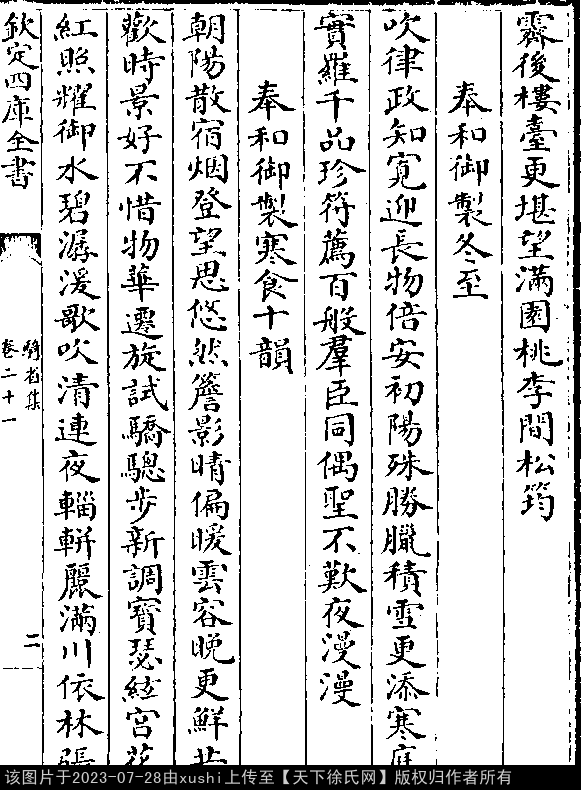 霽後樓臺更堪望滿園桃李間松筠
奉和御製冬至
吹律政知寛迎長物倍安初陽殊勝臘積雪更添寒庭
實羅千品珍符薦百般羣臣同偶聖不歎夜漫漫
奉和御製寒食十韻
朝陽散宿烟登望思悠然簷影晴偏暖雲容晩更鮮共
歡時景好不惜物華遷旋試驕驄步新調寶瑟絃宮花
紅照耀御水碧潺湲歌吹清連夜輜軿麗滿川依林張
欽定四庫全書
騎省集
卷二十一
二
该图片于2023-07-28由xushi上传至【天下徐氏网】版权归作者所有